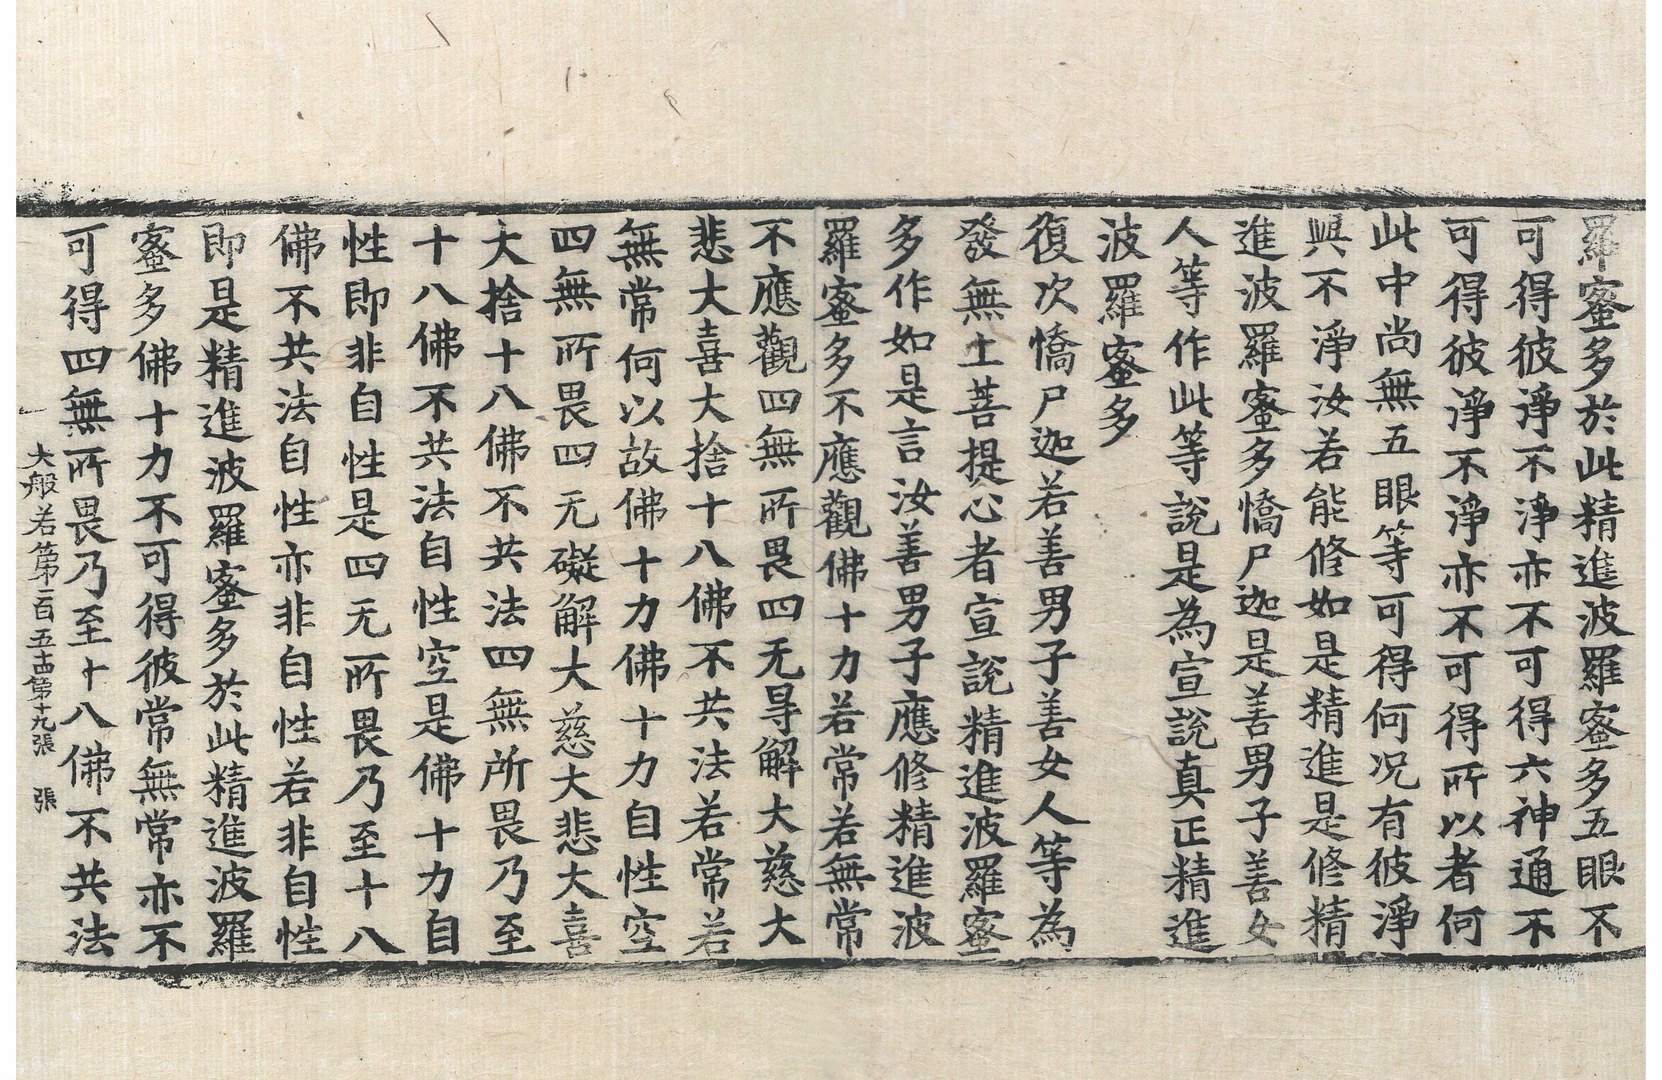 羅蜜多於此精進波羅蜜多五眼不
可得彼淨不淨亦不可得六神通不
可得彼淨不淨亦不可得所以者何
此中尚無五眼等可得何况有彼淨
與不淨汝若能修如是精進是修精
進波羅蜜多憍尸迦是善男子善女
人等作此等說是為宣說真正精進
波羅蜜多
復次憍尸迦若善男子善女人等為
發無上菩提心者宣說精進波羅蜜
多作如是言汝善男子應修精進波
羅蜜多不應觀佛十力若常若無常
不應觀四無所畏四无㝵解大慈大
悲大喜大捨十八佛不共法若常若
無常何以故佛十力佛十力自性空
四無所畏四无礙解大慈大悲大喜
大捨十八佛不共法四無所畏乃至
十八佛不共法自性空是佛十力自
性即非自性是四无所畏乃至十八
佛不共法自性亦非自性若非自性
即是精進波羅蜜多於此精進波羅
蜜多佛十力不可得彼常無常亦不
可得四無所畏乃至十八佛不共法
大般若第一百五十四第十九張 張